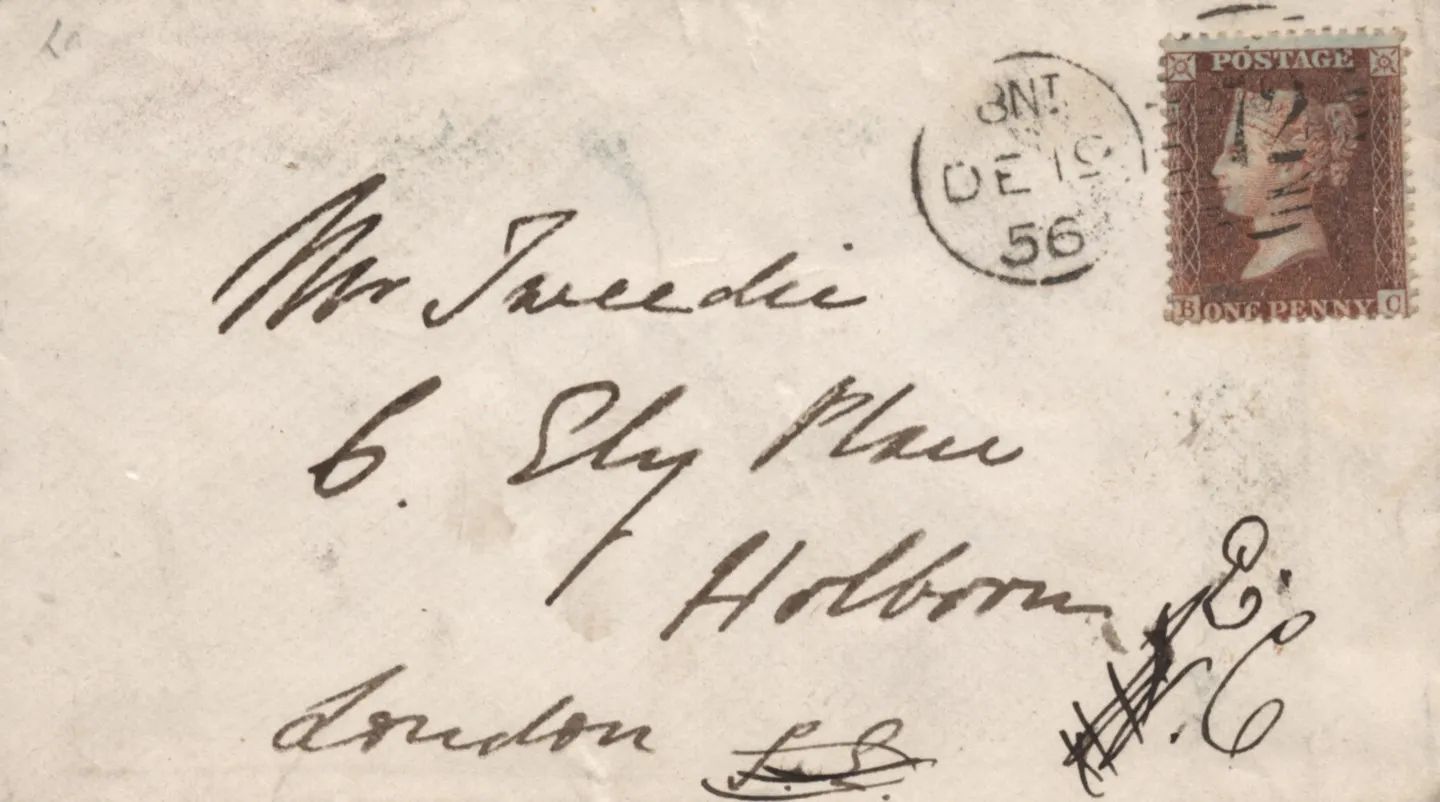 POSTAGE
12
DE 19
56
B ONE PENNY C
Mr Tweedie
6. Ely Place
Holborn
London
E. C